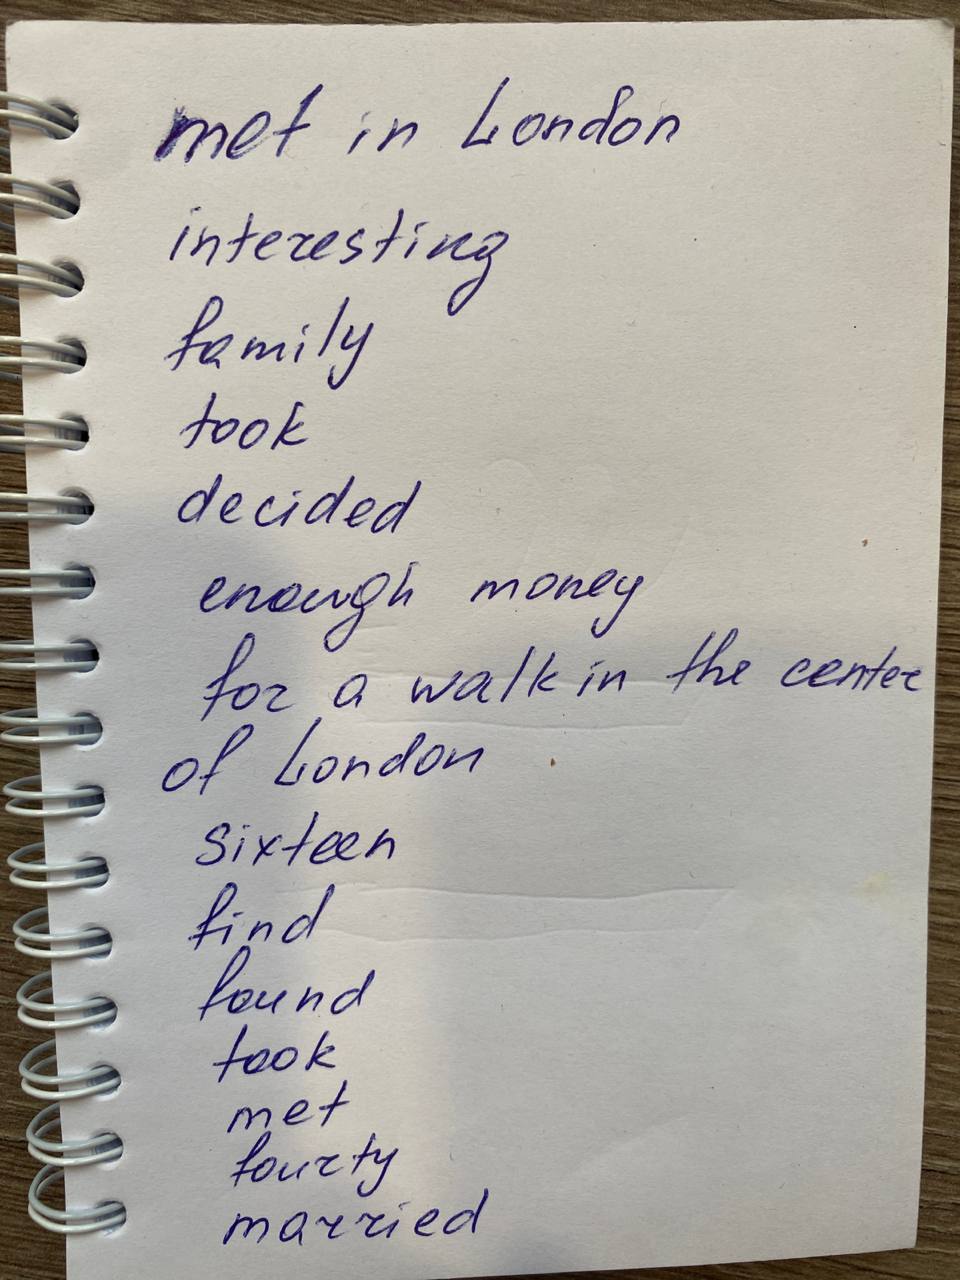 met in London
interesting
family
took
decided
enough money
for a walk in the center
of London
sixteen
find
found
took
met
fourty
married